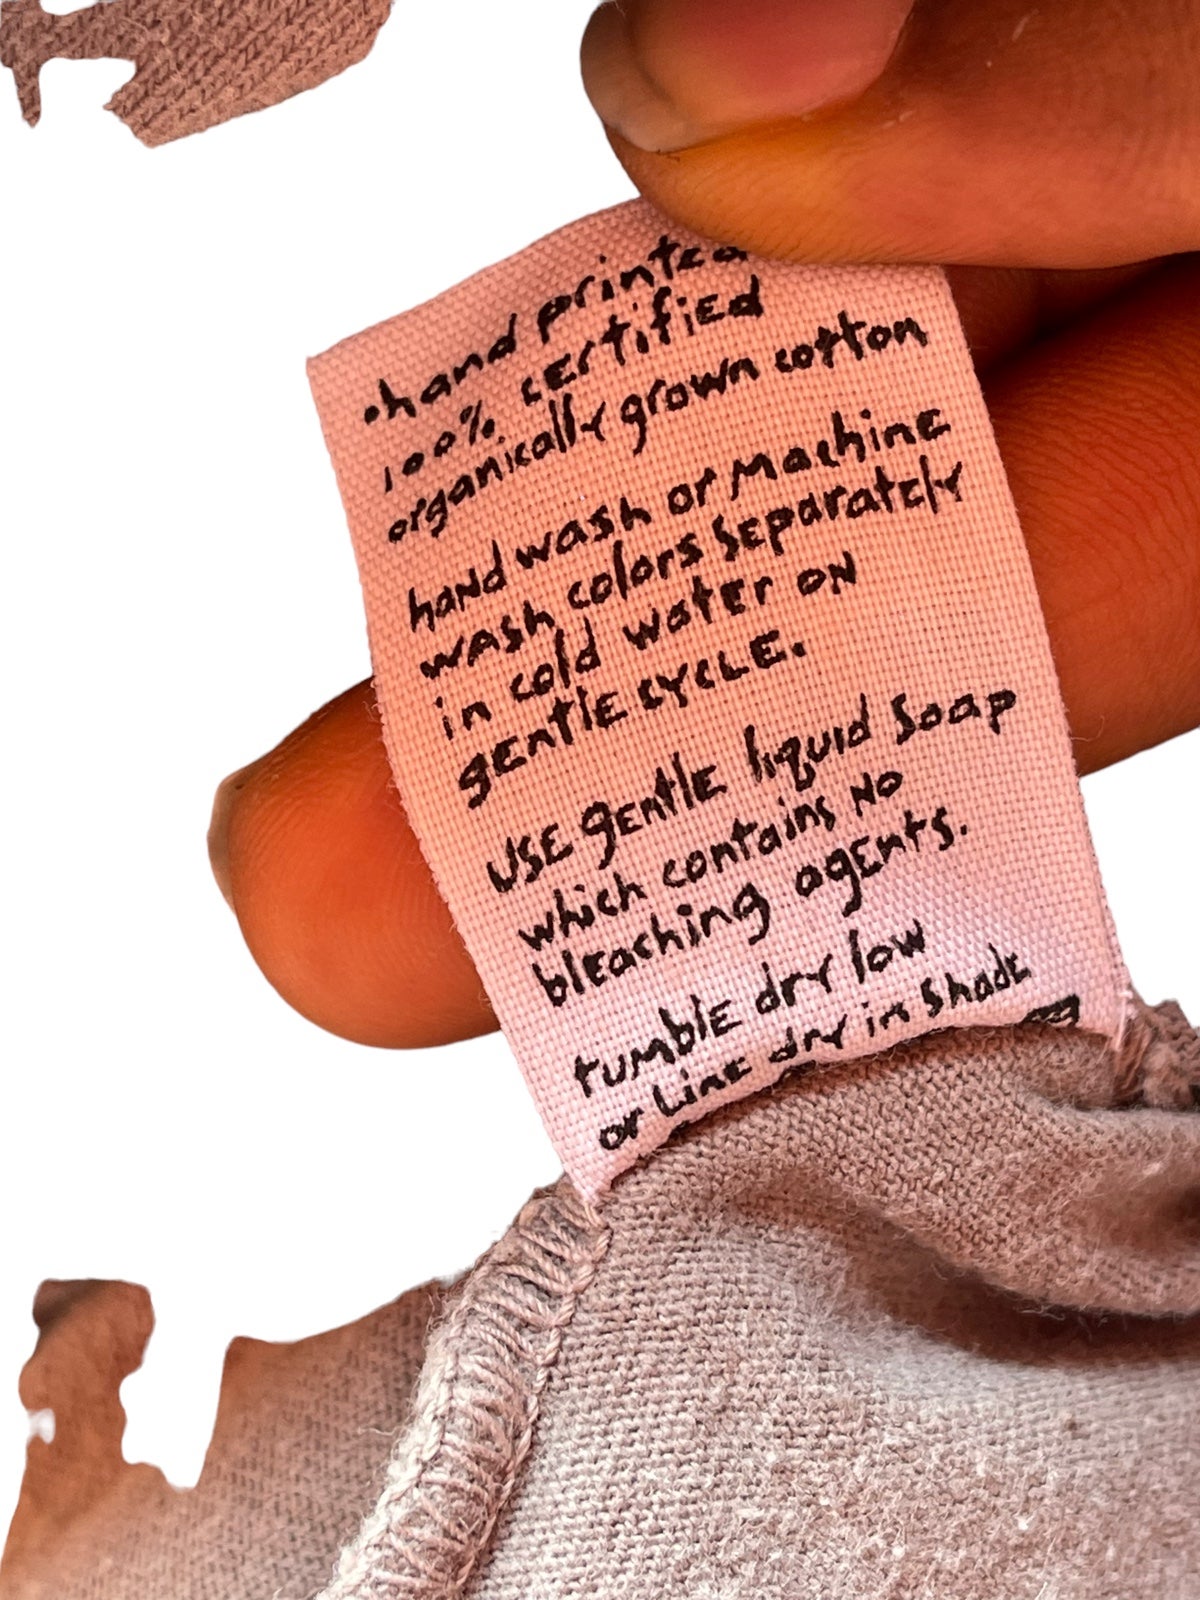 •hand printed
100% certified
organically grown cotton
hand wash or machine
wash colors separately
in cold water on
gentle cycle.
use gentle liquid soap
which contains no
bleaching agents.
tumble dry low
or line dry in shade